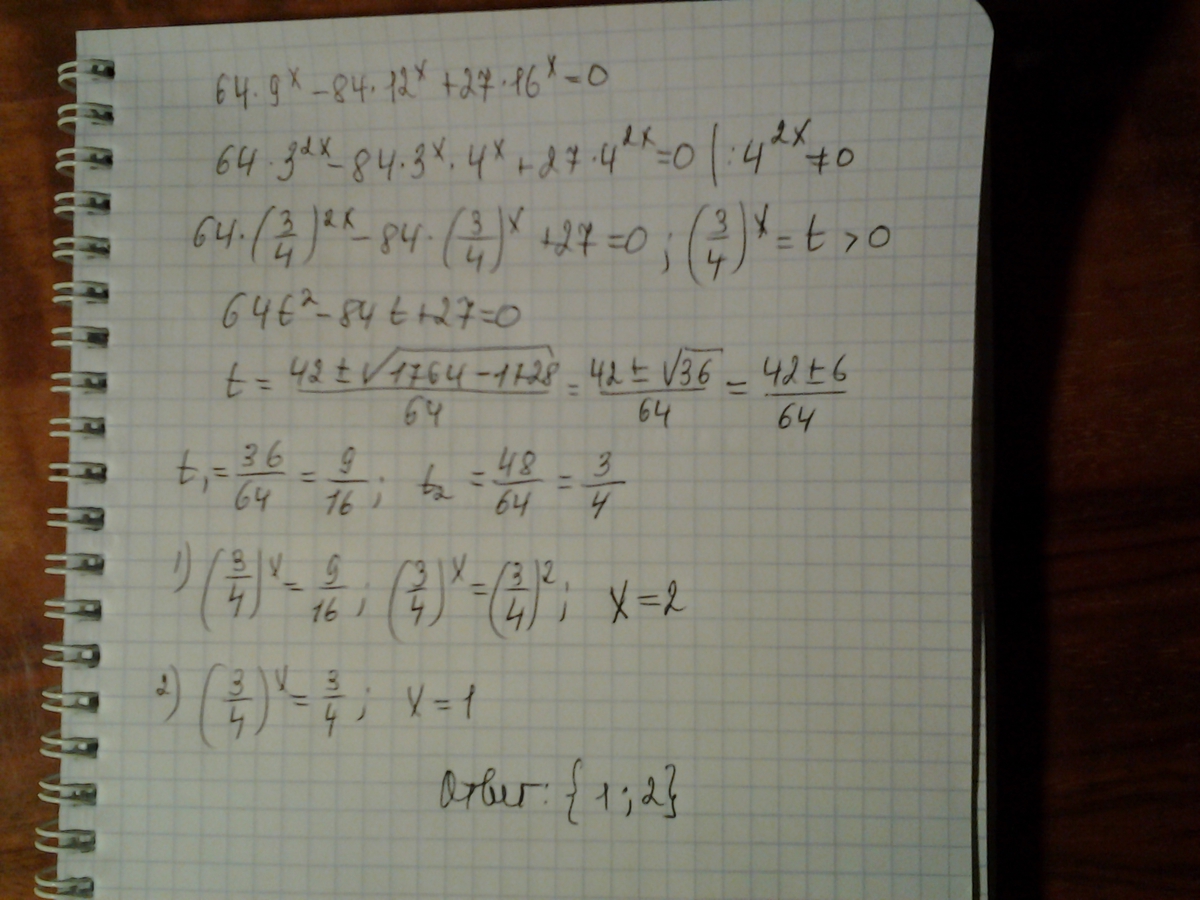 64·9^x − 84·12^x + 27·16^x = 0
64·3^{2x} − 84·3^x·4^x + 27·4^{2x} = 0 | : 4^{2x} ≠ 0
64·(3/4)^{2x} − 84·(3/4)^x + 27 = 0 ; (3/4)^x = t > 0
64t² − 84t + 27 = 0
t = (42 ± √(1764 − 1728))/64 = (42 ± √36)/64 = (42 ± 6)/64
t₁ = 36/64 = 9/16 ; t₂ = 48/64 = 3/4
1) (3/4)^x = 9/16 ; (3/4)^x = (3/4)² ; x = 2
2) (3/4)^x = 3/4 ; x = 1
Ответ: {1 ; 2}